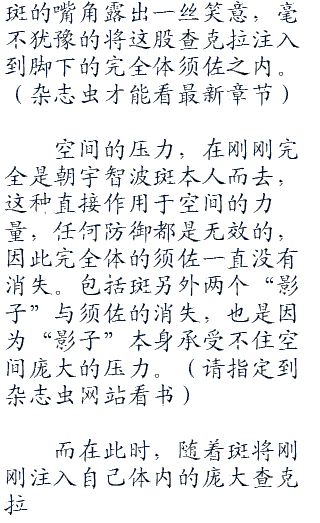 斑的嘴角露出一丝笑意，毫
不犹豫的将这股查克拉注入
到脚下的完全体须佐之内。
（杂志虫才能看最新章节）
空间的压力，在刚刚完
全是朝宇智波斑本人而去，
这种直接作用于空间的力
量，任何防御都是无效的，
因此完全体的须佐一直没有
消失。包括斑另外两个“影
子”与须佐的消失，也是因
为“影子”本身承受不住空
间庞大的压力。（请指定到
杂志虫网站看书）
而在此时，随着斑将刚
刚注入自己体内的庞大查克
拉